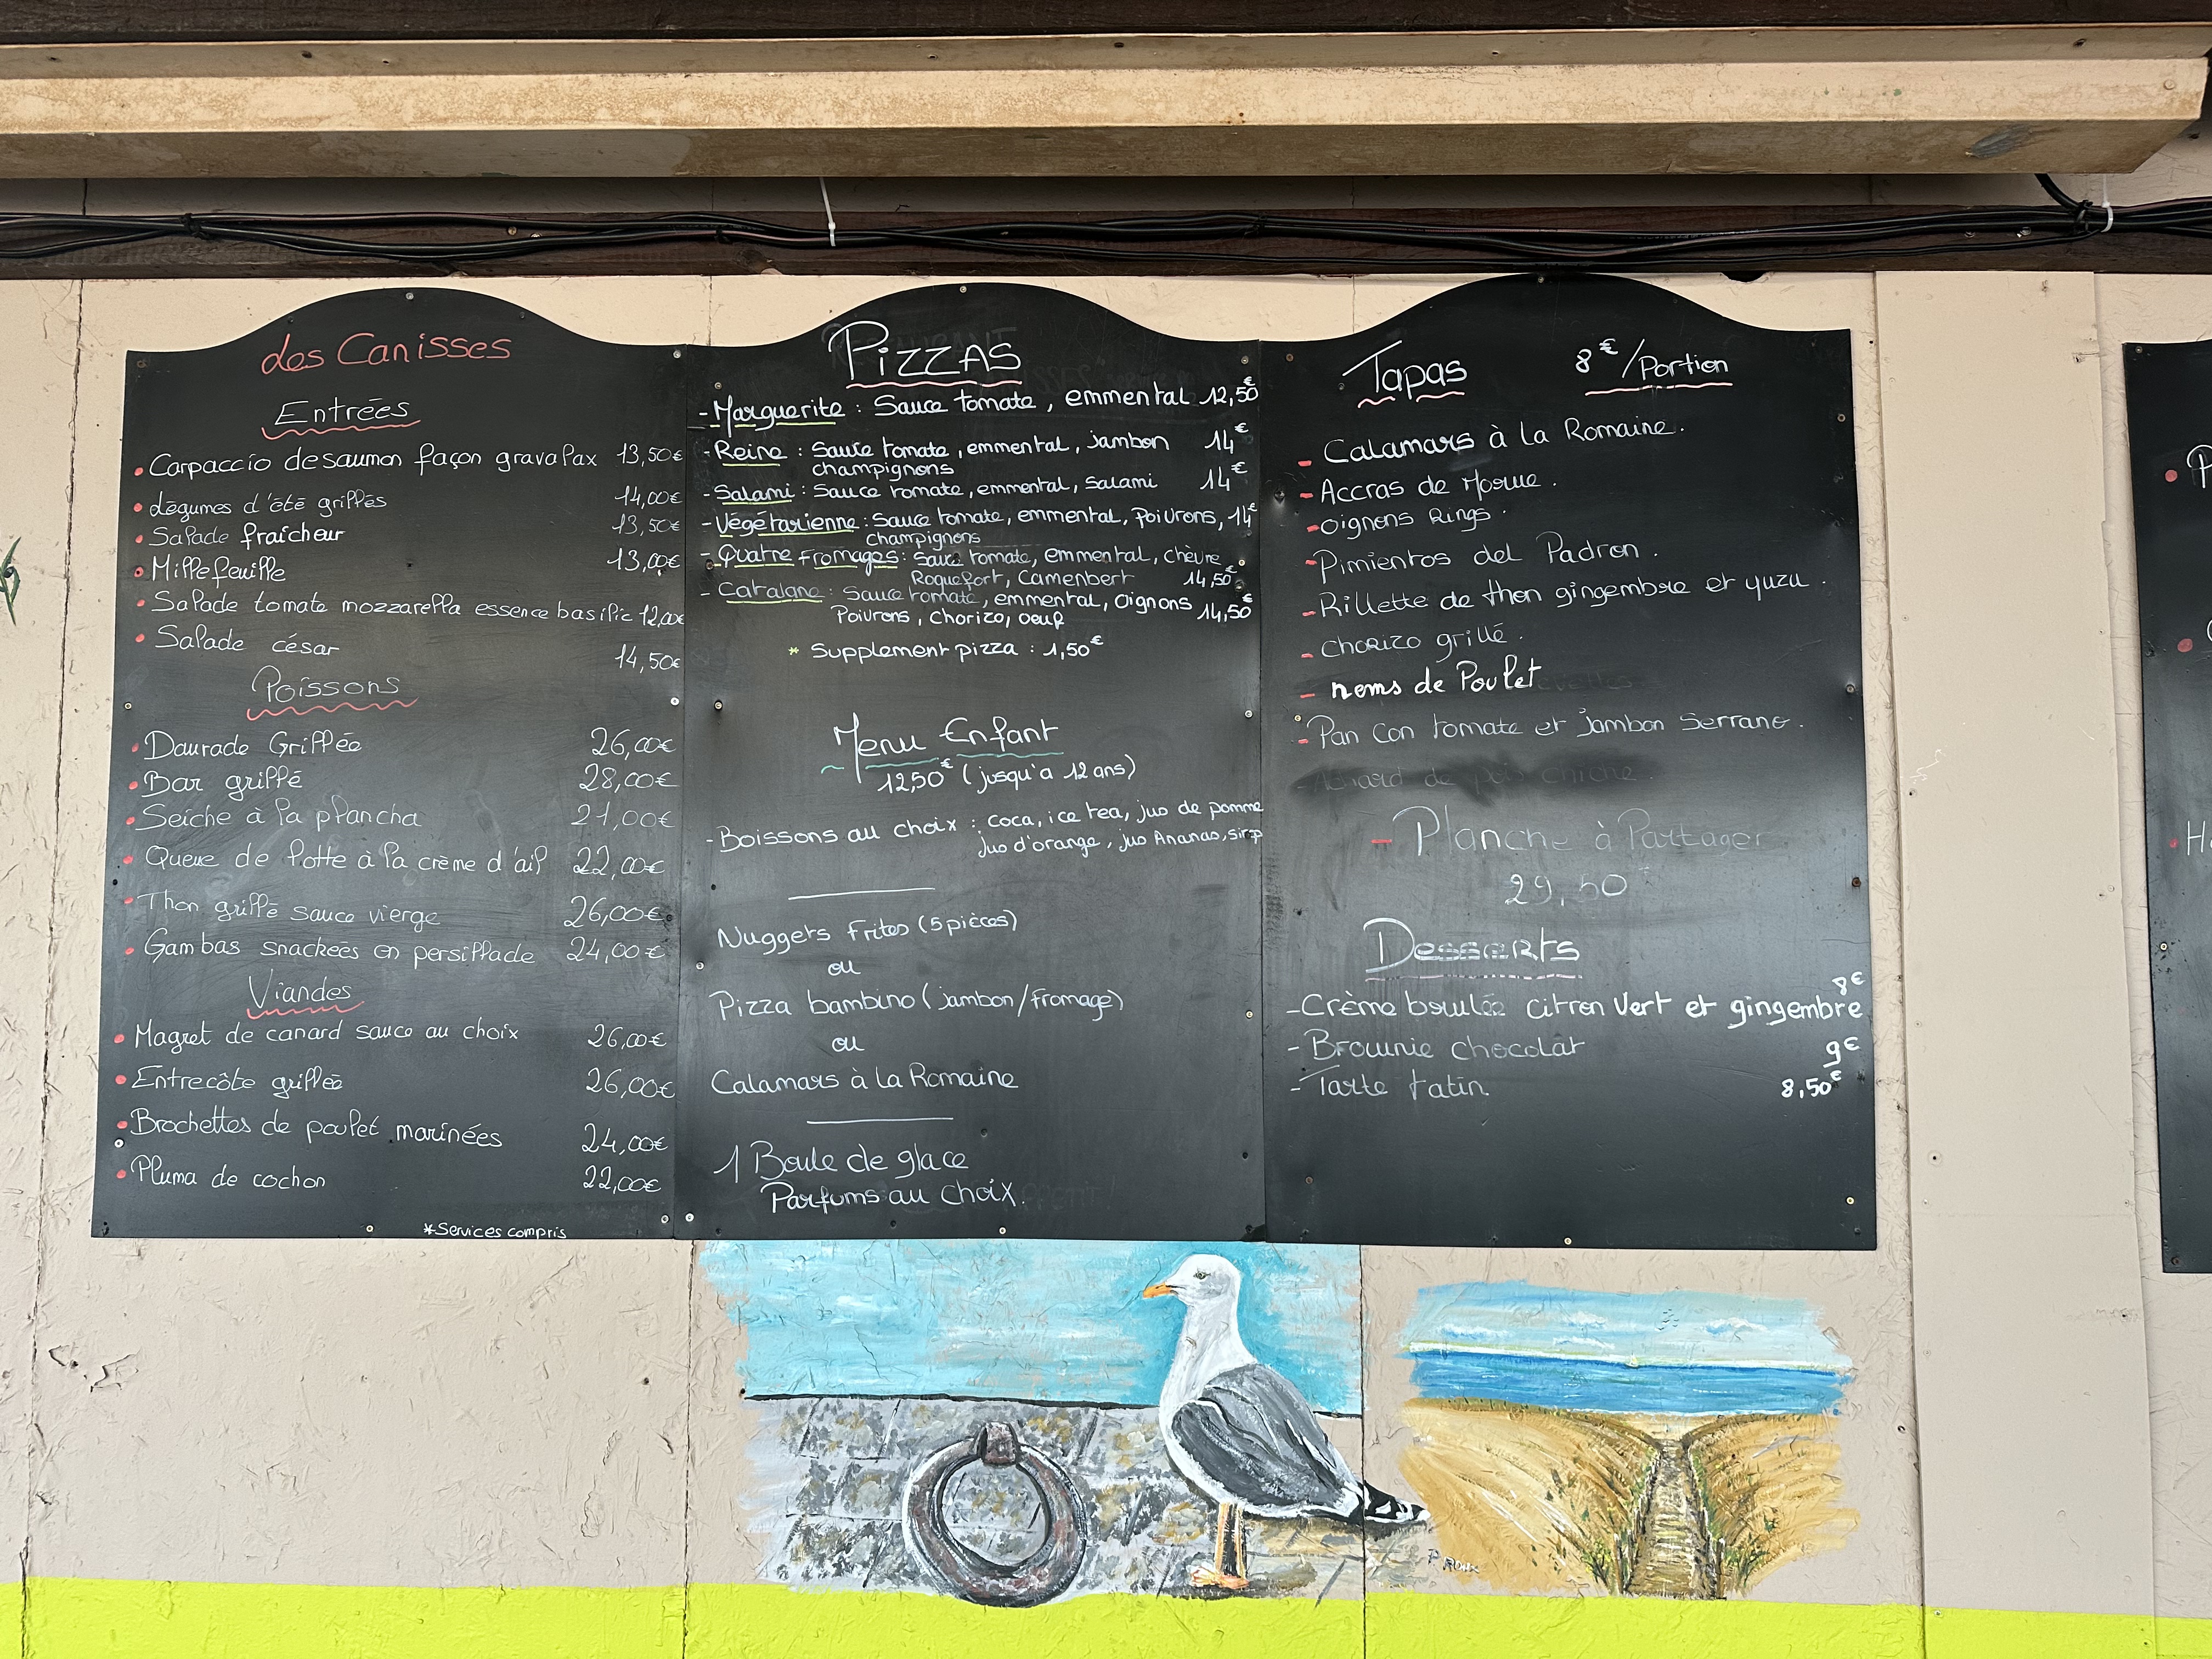 des Canisses
Entrées
• Carpaccio de saumon façon gravalax 13,50€
• Légumes d'été grillés 14,00€
• Salade fraîcheur 13,50€
• Millefeuille 13,00€
• Salade tomate mozzarella essence basilic 12,00€
• Salade césar 14,50€
Poissons
• Daurade Grillée 26,00€
• Bar grillé 28,00€
• Seiche à la plancha 21,00€
• Queue de lotte à la crème d'ail 22,00€
• Thon grillé sauce vierge 26,00€
• Gambas snackées en persillade 24,00€
Viandes
• Magret de canard sauce au choix 26,00€
• Entrecôte grillée 26,00€
• Brochettes de poulet marinées 24,00€
• Pluma de cochon 22,00€
*Services compris
Pizzas
- Marguerite : Sauce tomate, emmental 12,50€
- Reine : Sauce tomate, emmental, jambon 14€
champignons
- Salami : Sauce tomate, emmental, Salami 14€
- Végétarienne : Sauce tomate, emmental, Poivrons, 14€
champignons
- Quatre fromages : Sauce tomate, emmental, chèvre
Roquefort, Camenbert 14,50€
- Catalane : Sauce tomate, emmental, Oignons 14,50€
Poivrons, Chorizo, oeuf
* Supplement pizza : 1,50€
Menu Enfant
12,50€ (jusqu'a 12 ans)
- Boissons au choix : coca, ice tea, jus de pomme
jus d'orange, jus Ananas, sirop
Nuggets frites (5 pièces)
ou
Pizza bambino (jambon/fromage)
ou
Calamars à la Romaine
1 Boule de glace
Parfums au choix.
Tapas 8€/Portion
- Calamars à la Romaine.
- Accras de Morue.
- Oignons Rings.
- Pimientos del Padron.
- Rillette de thon gingembre et yuzu.
- Chorizo grillé.
- nems de Poulet
- Pan Con tomate et jambon Serrano.
- Planche à Partager
29,50€
Desserts
8€
- Crème brulée citron Vert et gingembre
- Brownie chocolat 9€
- Tarte tatin 8,50€